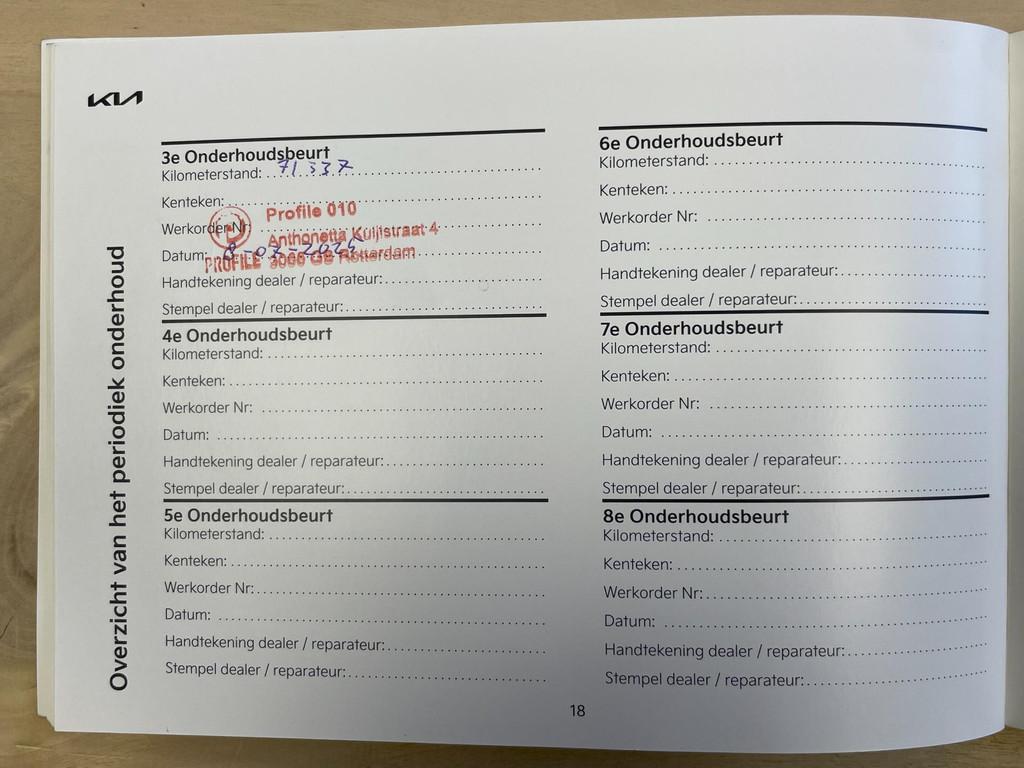 KIA
Overzicht van het periodiek onderhoud
3e Onderhoudsbeurt
Kilometerstand: 71.337
Kenteken:
Profile 010
Werkorder Nr:
Anthonetta Kuijlstraat 4
Datum: 8-07-2025
PROFILE 3066 GS Rotterdam
Handtekening dealer / reparateur:
Stempel dealer / reparateur:
4e Onderhoudsbeurt
Kilometerstand:
Kenteken:
Werkorder Nr:
Datum:
Handtekening dealer / reparateur:
Stempel dealer / reparateur:
5e Onderhoudsbeurt
Kilometerstand:
Kenteken:
Werkorder Nr:
Datum:
Handtekening dealer / reparateur:
Stempel dealer / reparateur:
6e Onderhoudsbeurt
Kilometerstand:
Kenteken:
Werkorder Nr:
Datum:
Handtekening dealer / reparateur:
Stempel dealer / reparateur:
7e Onderhoudsbeurt
Kilometerstand:
Kenteken:
Werkorder Nr:
Datum:
Handtekening dealer / reparateur:
Stempel dealer / reparateur:
8e Onderhoudsbeurt
Kilometerstand:
Kenteken:
Werkorder Nr:
Datum:
Handtekening dealer / reparateur:
Stempel dealer / reparateur:
18